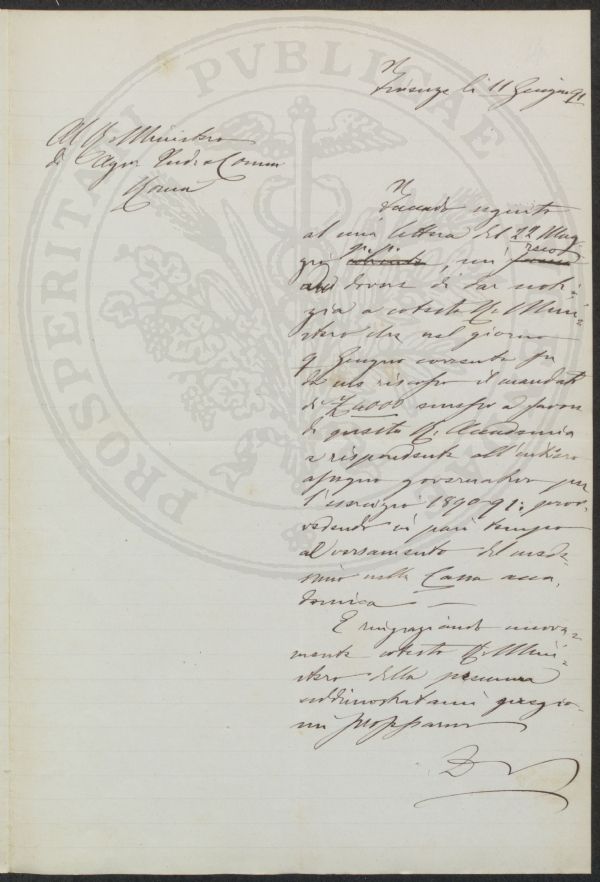 Firenze li 11 Giugno 91
Al R. Ministero
di Agr. Ind. e Comm
Roma
Facendo seguito
al mia lettera del 22 Mag
gio p.p., mi reco a
dovere di dar noti-
zia a cotesto R. Mini-
stero che nel giorno
9 Giugno corrente fu
da me riscosso il mandato
di L 4000 emesso a favore
di questa R. Accademia
e rispondente all'intiero
assegno governativo per
l'esercizio 1890-91: prov-
vedendo in pari tempo
al versamento del mede-
simo nella Cassa acca-
demica —
E ringraziando nuova-
mente cotesto R. Mini-
stero della premura
addimostratami pregio-
mi professarmi
PROSPERITATI PVBLICAE